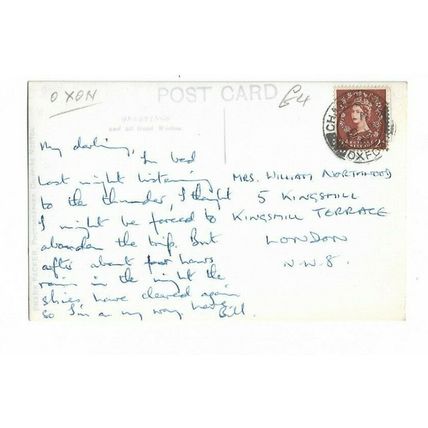 OXON
POST CARD
£4
GREETINGS
and all Good Wishes
CHA
OXFO
My darling,
In bed
last night listening
to the thunder, I thought
I might be forced to
abandon the trip. But
after about four hours
rain in the night the
skies have cleared again
so I'm on my way here.
Bill.
MRS. WILLIAM NORTHWOOD
5 KINGSHILL
KINGSMILL TERRACE
LONDON
N.W.8.